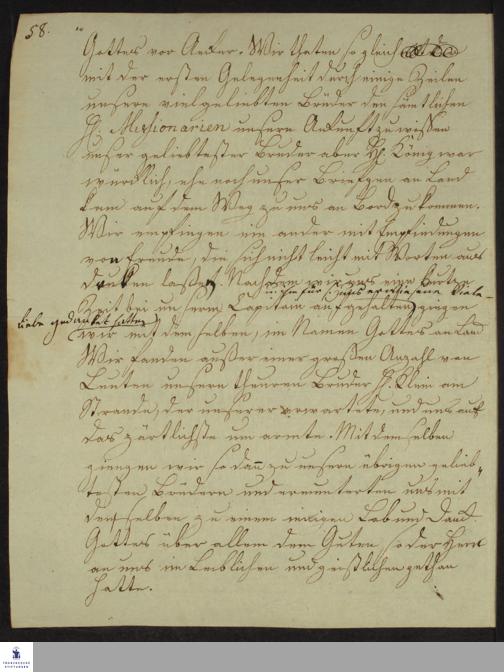 58.
Gottes vor Anker. Wir thaten so gleich
mit der ersten Gelegenheit durch einige Zeilen
unsere vielgeliebten Brüder den sämtlichen
H. Missionarien unsere Ankunft zu wissen
unser geliebtester Bruder aber H. König war
würcklich, ehe noch unser Briefgen an Land
kam auf dem Weg zu uns an Bord zu kommen.
Wir empfingen ein ander mit Empfindungen
von Freude, die sich nicht leicht mit Worten aus
druken laßen. Nachdem wir uns eine kurtze
u. ihm für uns erwiesene viele
Zeit bei unserm Capitain aufgehalten, giengen
liebe gedanket hatten
wir mit demselben, im Namen Gottes an Land
Wir fanden außer einer großen Anzahl von
Leuten unsern theuren Bruder H. Klein am
Strande, der unserer erwartete, und uns auf
das zärtlichste um armte. Mit demselben
giengen wir so dan zu unsern übrigen gelieb-
testen Brüdern und ermunterten uns mit
denselben zu einem innigen Lob und Danck
Gottes über allem dem Guten, so der Herr
an uns im Leiblichen und geistlichen gethan
hatte.
FRANCKESCHE
STIFTUNGEN